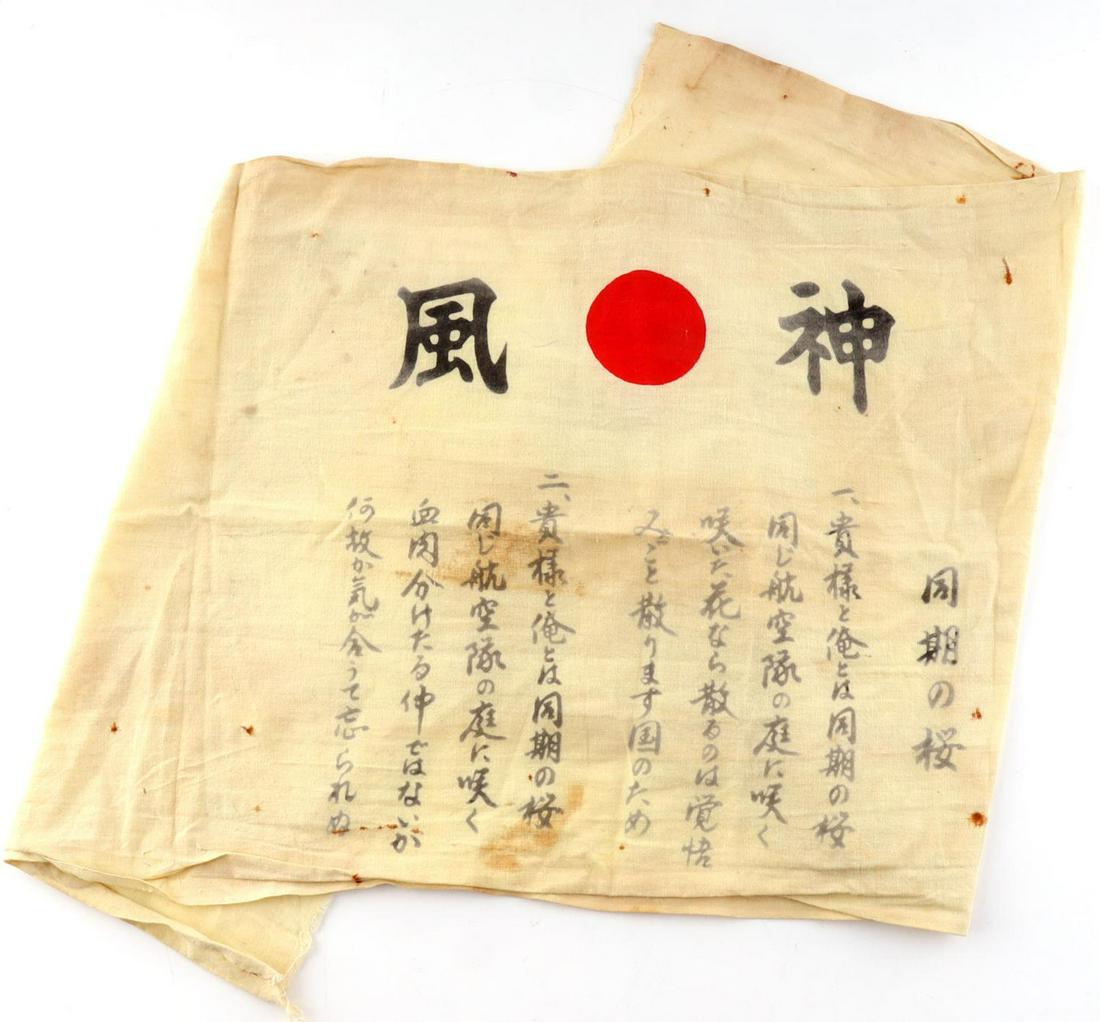 神風
同期の桜
一、貴様と俺とは同期の桜
同じ航空隊の庭に咲く
咲いた花なら散るのは覚悟
みごと散ります国のため
二、貴様と俺とは同期の桜
同じ航空隊の庭に咲く
血肉分けたる仲ではないが
何故か気が合うて忘られぬ